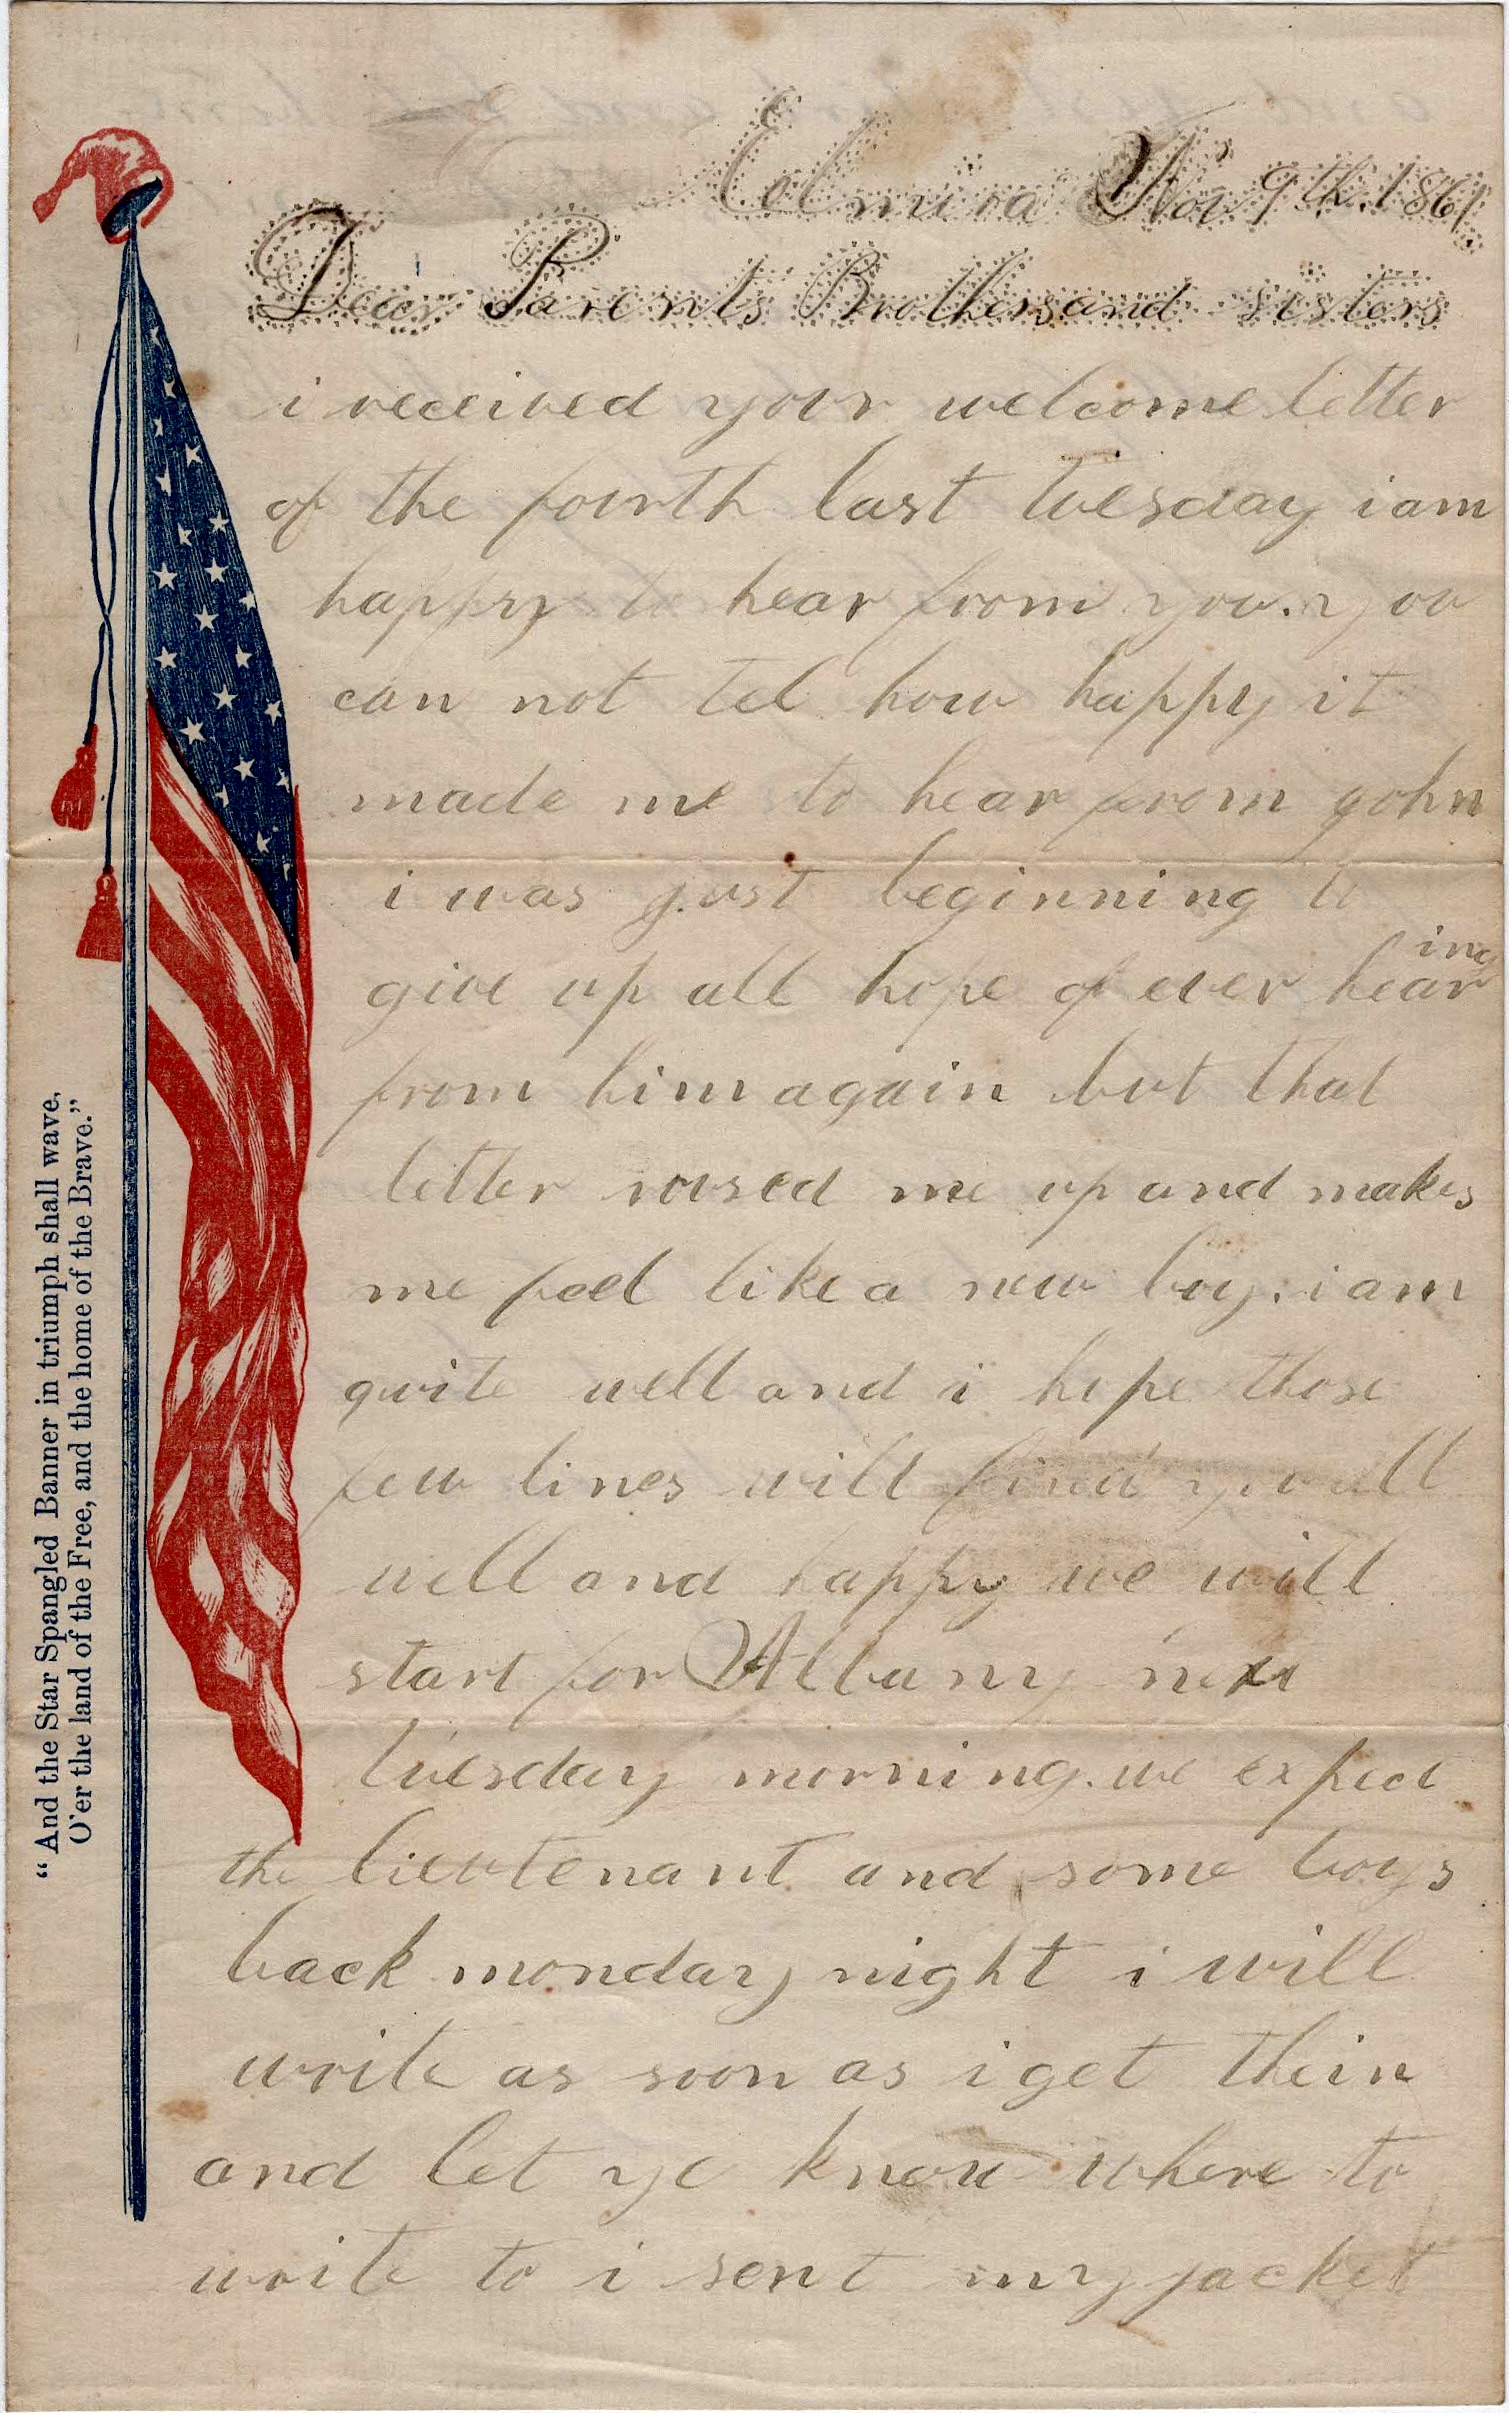 Elmira Nov 9th. 1861
Dear Parents Brothers and sisters
i received your welcome letter
of the fourth last tuesday i am
happy to hear from you. you
can not tel how happy it
made me to hear from john
i was just beginning to
ing
give up all hope of ever hear
from him again but that
letter roused me up and makes
me feel like a new boy. i am
quite well and i hope those
few lines will find you all
well and happy we will
start for Albany next
tuesday morning. we expect
the lieutenant and some boys
back monday night i will
write as soon as i get thein
and let ye know where to
write to i sent my jacket
"And the Star Spangled Banner in triumph shall wave,
O'er the land of the Free, and the home of the Brave."